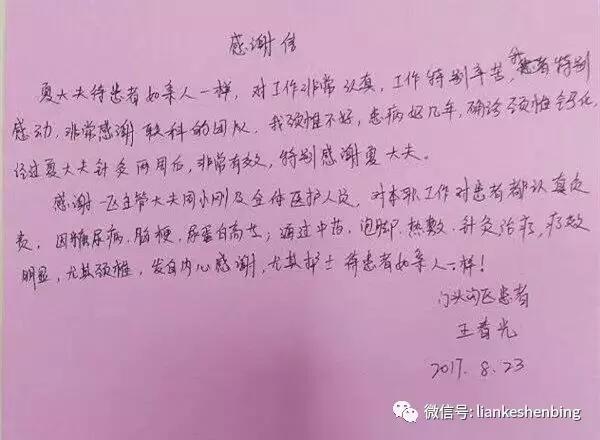 感谢信
夏大夫待患者如亲人一样，对工作非常认真，工作特别辛苦，我患者特别
感动，非常感谢联科的团队，我颈椎不好，患病好几年，确诊颈椎
经过夏大夫针灸两周后，非常有效，特别感谢夏大夫。
感谢一区主管大夫周小刚及全体医护人员，对本职工作对患者都认真负
责，因糖尿病，脑梗，尿蛋白高等；通过中药，泡脚，热敷，针灸治疗，疗效
明显，尤其颈椎，发自内心感谢，尤其护士待患者如亲人一样！
门头沟区患者
王春光
2017.8.23
微信号: liankeshenbing